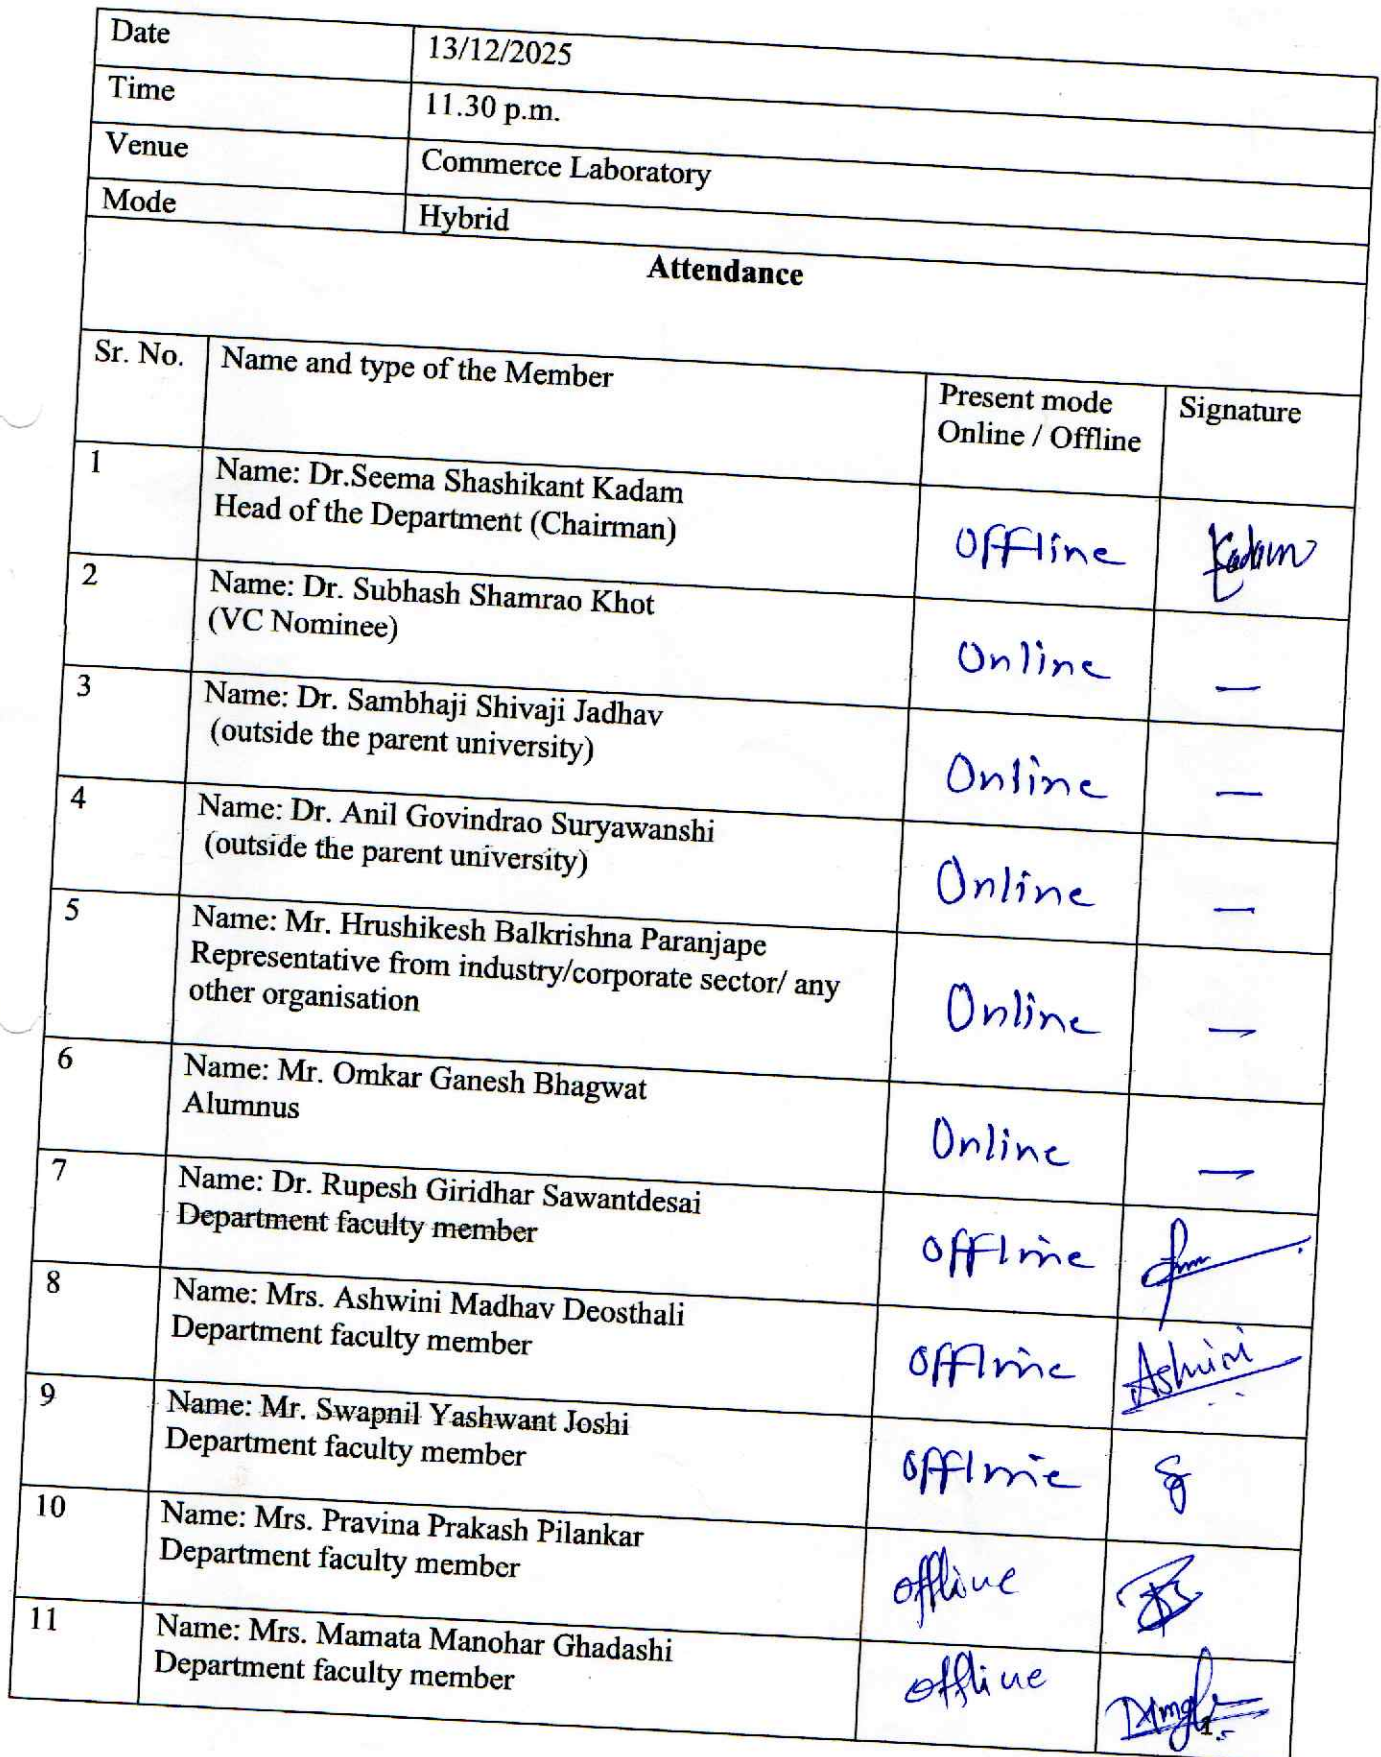 Date 13/12/2025
Time 11.30 p.m.
Venue Commerce Laboratory
Mode Hybrid
Attendance
Sr. No. Name and type of the Member Present mode Signature
Online / Offline
1 Name: Dr.Seema Shashikant Kadam
Head of the Department (Chairman) Offline Kadam
2 Name: Dr. Subhash Shamrao Khot
(VC Nominee) Online —
3 Name: Dr. Sambhaji Shivaji Jadhav
(outside the parent university) Online —
4 Name: Dr. Anil Govindrao Suryawanshi
(outside the parent university) Online —
5 Name: Mr. Hrushikesh Balkrishna Paranjape
Representative from industry/corporate sector/ any
other organisation Online —
6 Name: Mr. Omkar Ganesh Bhagwat
Alumnus Online —
7 Name: Dr. Rupesh Giridhar Sawantdesai
Department faculty member Offline
8 Name: Mrs. Ashwini Madhav Deosthali
Department faculty member Offline Ashwini
9 Name: Mr. Swapnil Yashwant Joshi
Department faculty member Offline
10 Name: Mrs. Pravina Prakash Pilankar
Department faculty member offline
11 Name: Mrs. Mamata Manohar Ghadashi
Department faculty member offline
1